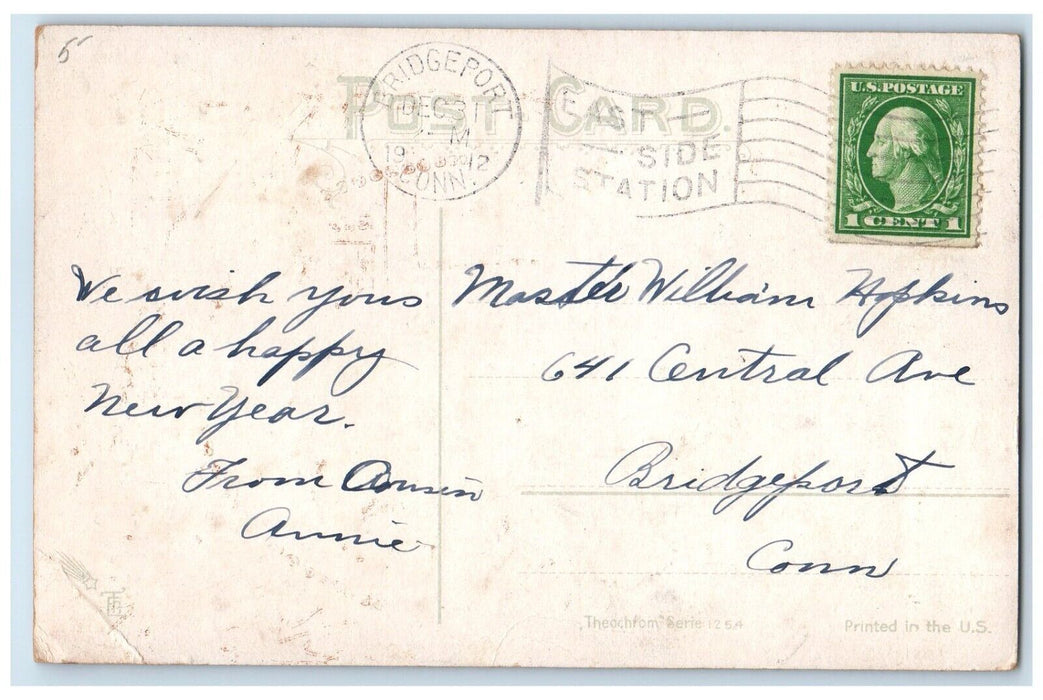 5
POST CARD.
BRIDGEPORT
DEC 31
M
19 12
CONN.
EAST
SIDE
STATION
U.S. POSTAGE
1 CENT 1
We wish yous
all a happy
New Year.
From Cousin
Annie
Master William Hopkins
641 Central Ave
Bridgeport
Conn
Theochrom Serie 1254
Printed in the U.S.